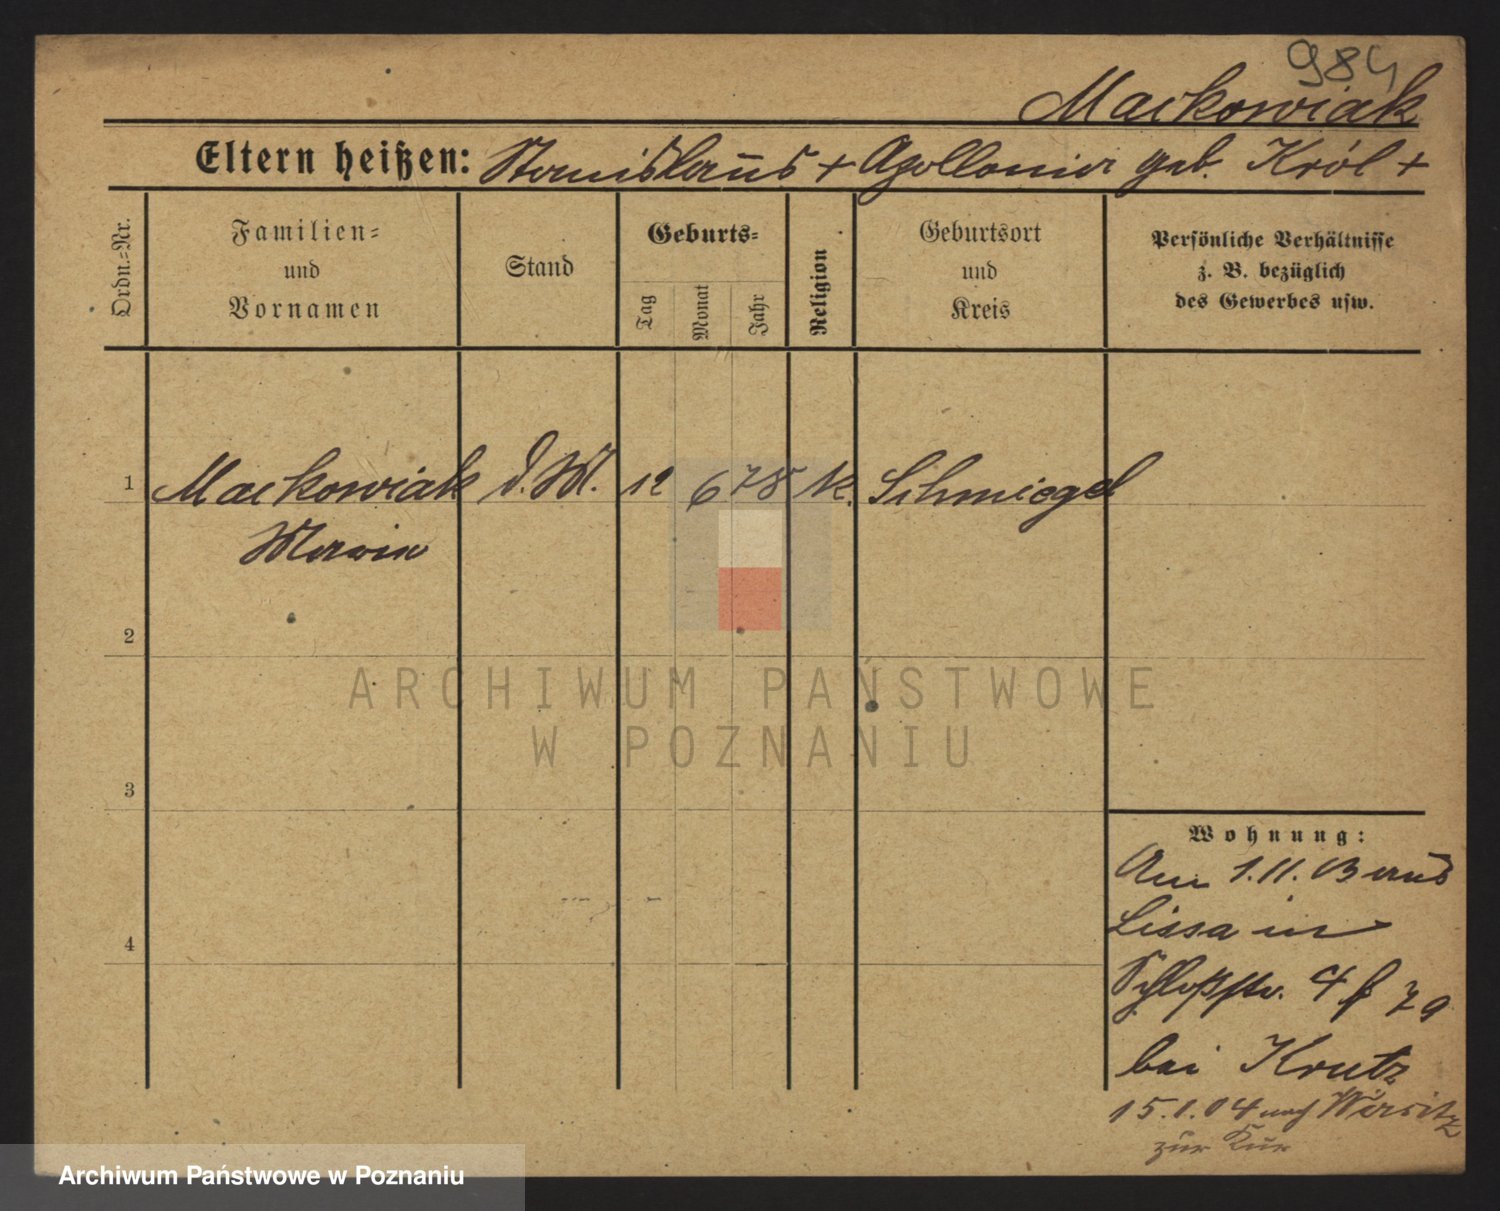 984
Mackowiak
Eltern heißen: Stanislaus + Apollonia geb. Król +
Ordn.-Nr.
Familien-
und
Vornamen
Stand
Geburts-
Tag
Monat
Jahr
Religion
Geburtsort
und
Kreis
Persönliche Verhältnisse
z. B. bezüglich
des Gewerbes usw.
1 Mackowiak d. M. 12 6 78 k. Schmiegel
2
3
4
Wohnung:
Am 1.11.03 aus
Lissa in
Schloßstr. 4
bei Krutz
15.1.04 nach Wirsitz
zur Kur
ARCHIWUM PAŃSTWOWE
W POZNANIU
Archiwum Państwowe w Poznaniu